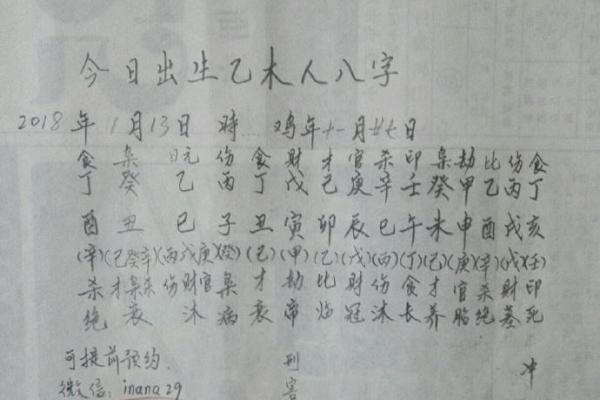 今日出生乙木人八字
2018年1月13日 時... 鸡年十一月廿七日
食 枭 日元 伤 食 财 才 官 杀 印 枭 劫 比 伤 食
丁 癸 乙 丙 丁 戊 己 庚 辛 壬 癸 甲 乙 丙 丁
酉 丑 巳 子 丑 寅 卯 辰 巳 午 未 申 酉 戌 亥
(辛)(己癸辛)(丙戊庚)(癸)(己)(甲)(乙)(戊)(丙)(丁)(己)(庚)(辛)(戊)(壬)
杀 才枭杀 伤财官 枭 才 劫 比 财 伤 食 才 官 杀 财 印
绝 衰 沐 病 衰 帝 临 冠 沐 长 养 胎 绝 墓 死
可提前预约. 刑 冲
微信: inana29 害